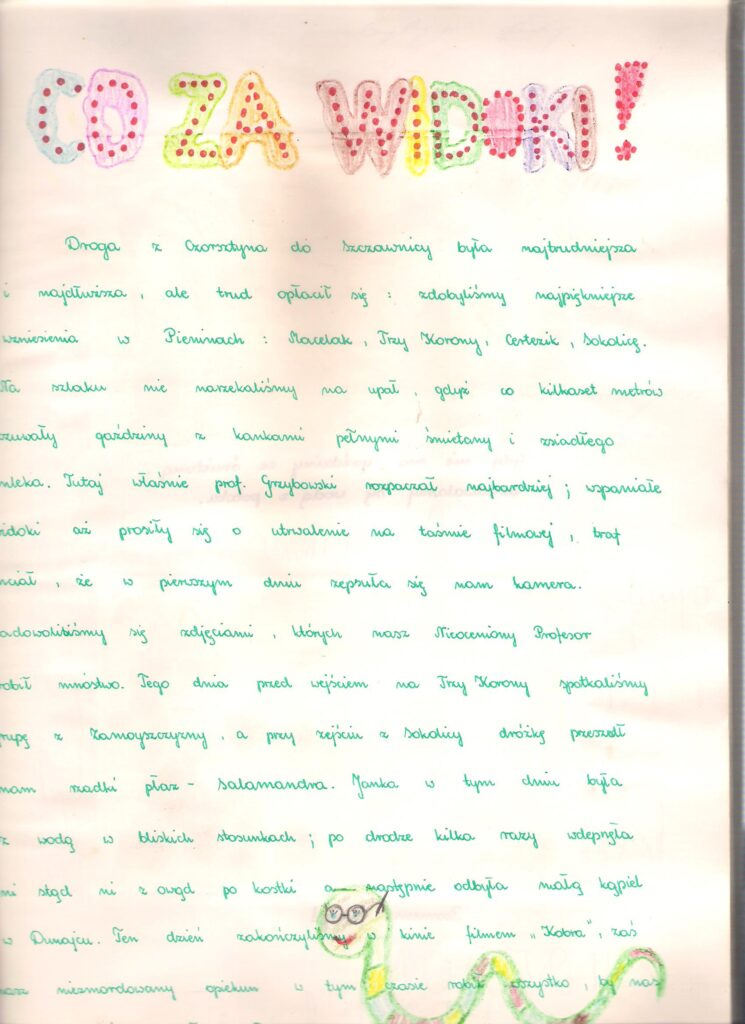 CO ZA WIDOKI!
Droga z Czorsztyna do Szczawnicy była najtrudniejsza
i najdłuższa, ale trud opłacił się: zdobyliśmy najpiękniejsze
wzniesienia w Pieninach: Macelak, Trzy Korony, Certezik, Sokolicę.
Na szlaku nie narzekaliśmy na upał, gdyż co kilkaset metrów
czuwały gaździny z kankami pełnymi śmietany i zsiadłego
mleka. Tutaj właśnie prof. Grzybowski rozpaczał najbardziej; wspaniałe
widoki aż prosiły się o utrwalenie na taśmie filmowej, traf
chciał, że w pierwszym dniu zepsuła się nam kamera.
adowoliliśmy się zdjęciami, których nasz Nieoceniony Profesor
robił mnóstwo. Tego dnia przed wejściem na Trzy Korony spotkaliśmy
grupę z Zamojszczyzny, a przy zejściu z Sokolicy dróżkę przeszedł
nam rzadki płaz - salamandra. Janka w tym dniu była
z wodą w bliskich stosunkach; po drodze kilka razy wdepnęła
ni stąd ni z owąd po kostki a następnie odbyła małą kąpiel
w Dunajcu. Ten dzień zakończyliśmy w kinie filmem „Kobra", zaś
nasz niezmordowany opiekun w tym czasie robił wszystko, by nas